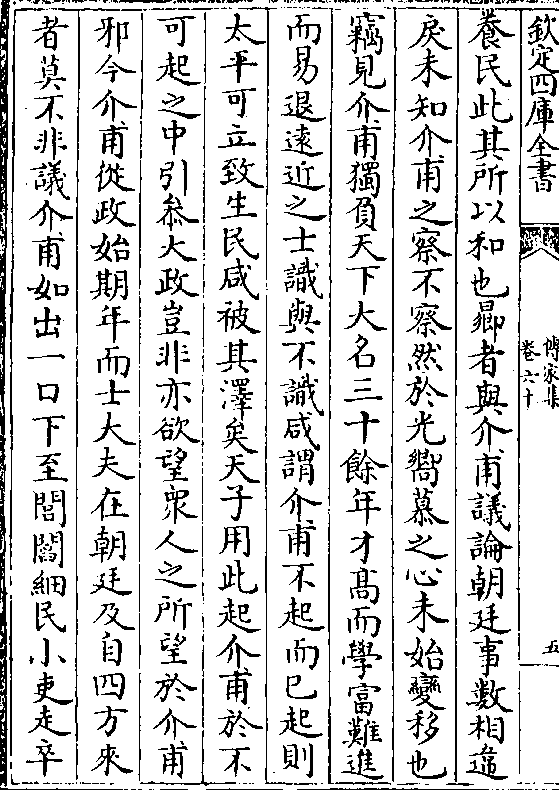 欽定四庫全書
傳家集
卷六十
五
養民此其所以和也曏者與介甫議論朝廷事數相違
戾未知介甫之察不察然於光嚮慕之心未始變移也
竊見介甫獨負天下大名三十餘年才髙而學富難進
而易退逺近之士識與不識咸謂介甫不起而已起則
太平可立致生民咸被其澤矣天子用此起介甫於不
可起之中引叅大政豈非亦欲望衆人之所望於介甫
邪今介甫從政始期年而士大夫在朝廷及自四方來
者莫不非議介甫如出一口下至閭閻細民小吏走卒